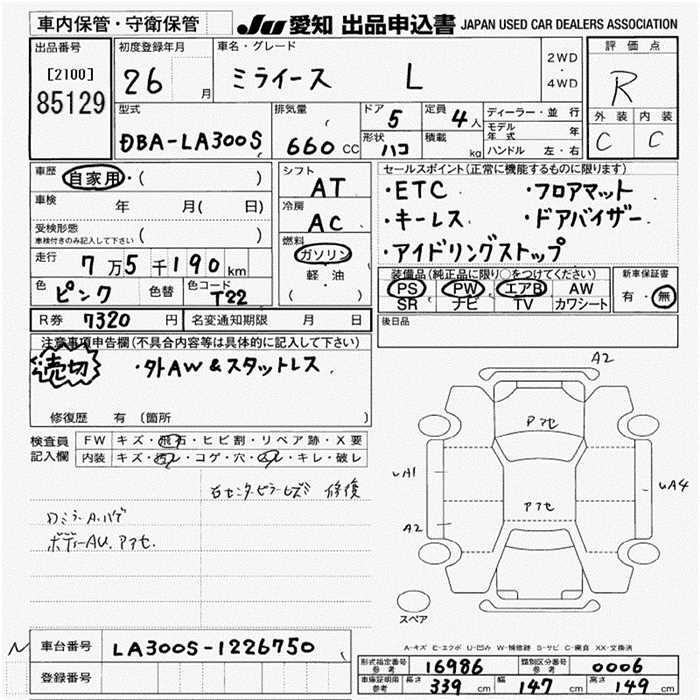 車内保管・守衛保管
JU 愛知 出品申込書 JAPAN USED CAR DEALERS ASSOCIATION
出品番号
[2100]
85129
初度登録年月
26 月
車名・グレード
ミライース L
2WD
・
4WD
評価点
R
外装 内装
C C
型式
DBA-LA300S
排気量
660 CC
ドア 5
定員 4人
形状 ハコ
積載 kg
ディーラー・並行
モデル年式 年
ハンドル 左・右
車歴 自家用・( )
車検 年 月( 日)
受検形態
車検付きのみ記入して下さい ( )
走行 7万5千190km
色 ピンク 色替 色コード T22
シフト
AT
冷房
AC
燃料
ガソリン
軽油
( ・ )
セールスポイント(正常に機能するものに限ります)
・ETC ・フロアマット
・キーレス ・ドアバイザー
・アイドリングストップ
装備品(純正品に限り○をつけてください)
PS PW エアB AW
SR ナビ TV カワシート
新車保証書
有・無
R券 7320 円 名変通知期限 月 日
後日品
注意事項申告欄(不具合内容等は具体的に記入して下さい)
売切 ・外AW&スタットレス
修復歴 有 (箇所 )
検査員
記入欄
FW キズ・飛石・ヒビ割・リペア跡・X要
内装 キズ・汚レ・コゲ・穴・スレ・キレ・破レ
右センターピラーヒズミ 修復
ミラーA.ハゲ
ボディーAU.アセ
A2
アセ
UA1
アセ
UA4
A2
スペア
A-キズ E-エクボ U-凹み W-補修跡 S-サビ C-腐食 XX-交換済
N
車台番号 LA300S-1226750
登録番号
形式指定番号
参考 16986
類別区分番号
参考 0006
車庫証明用
参考
長さ 339 cm 幅 147 cm 高さ 149 cm